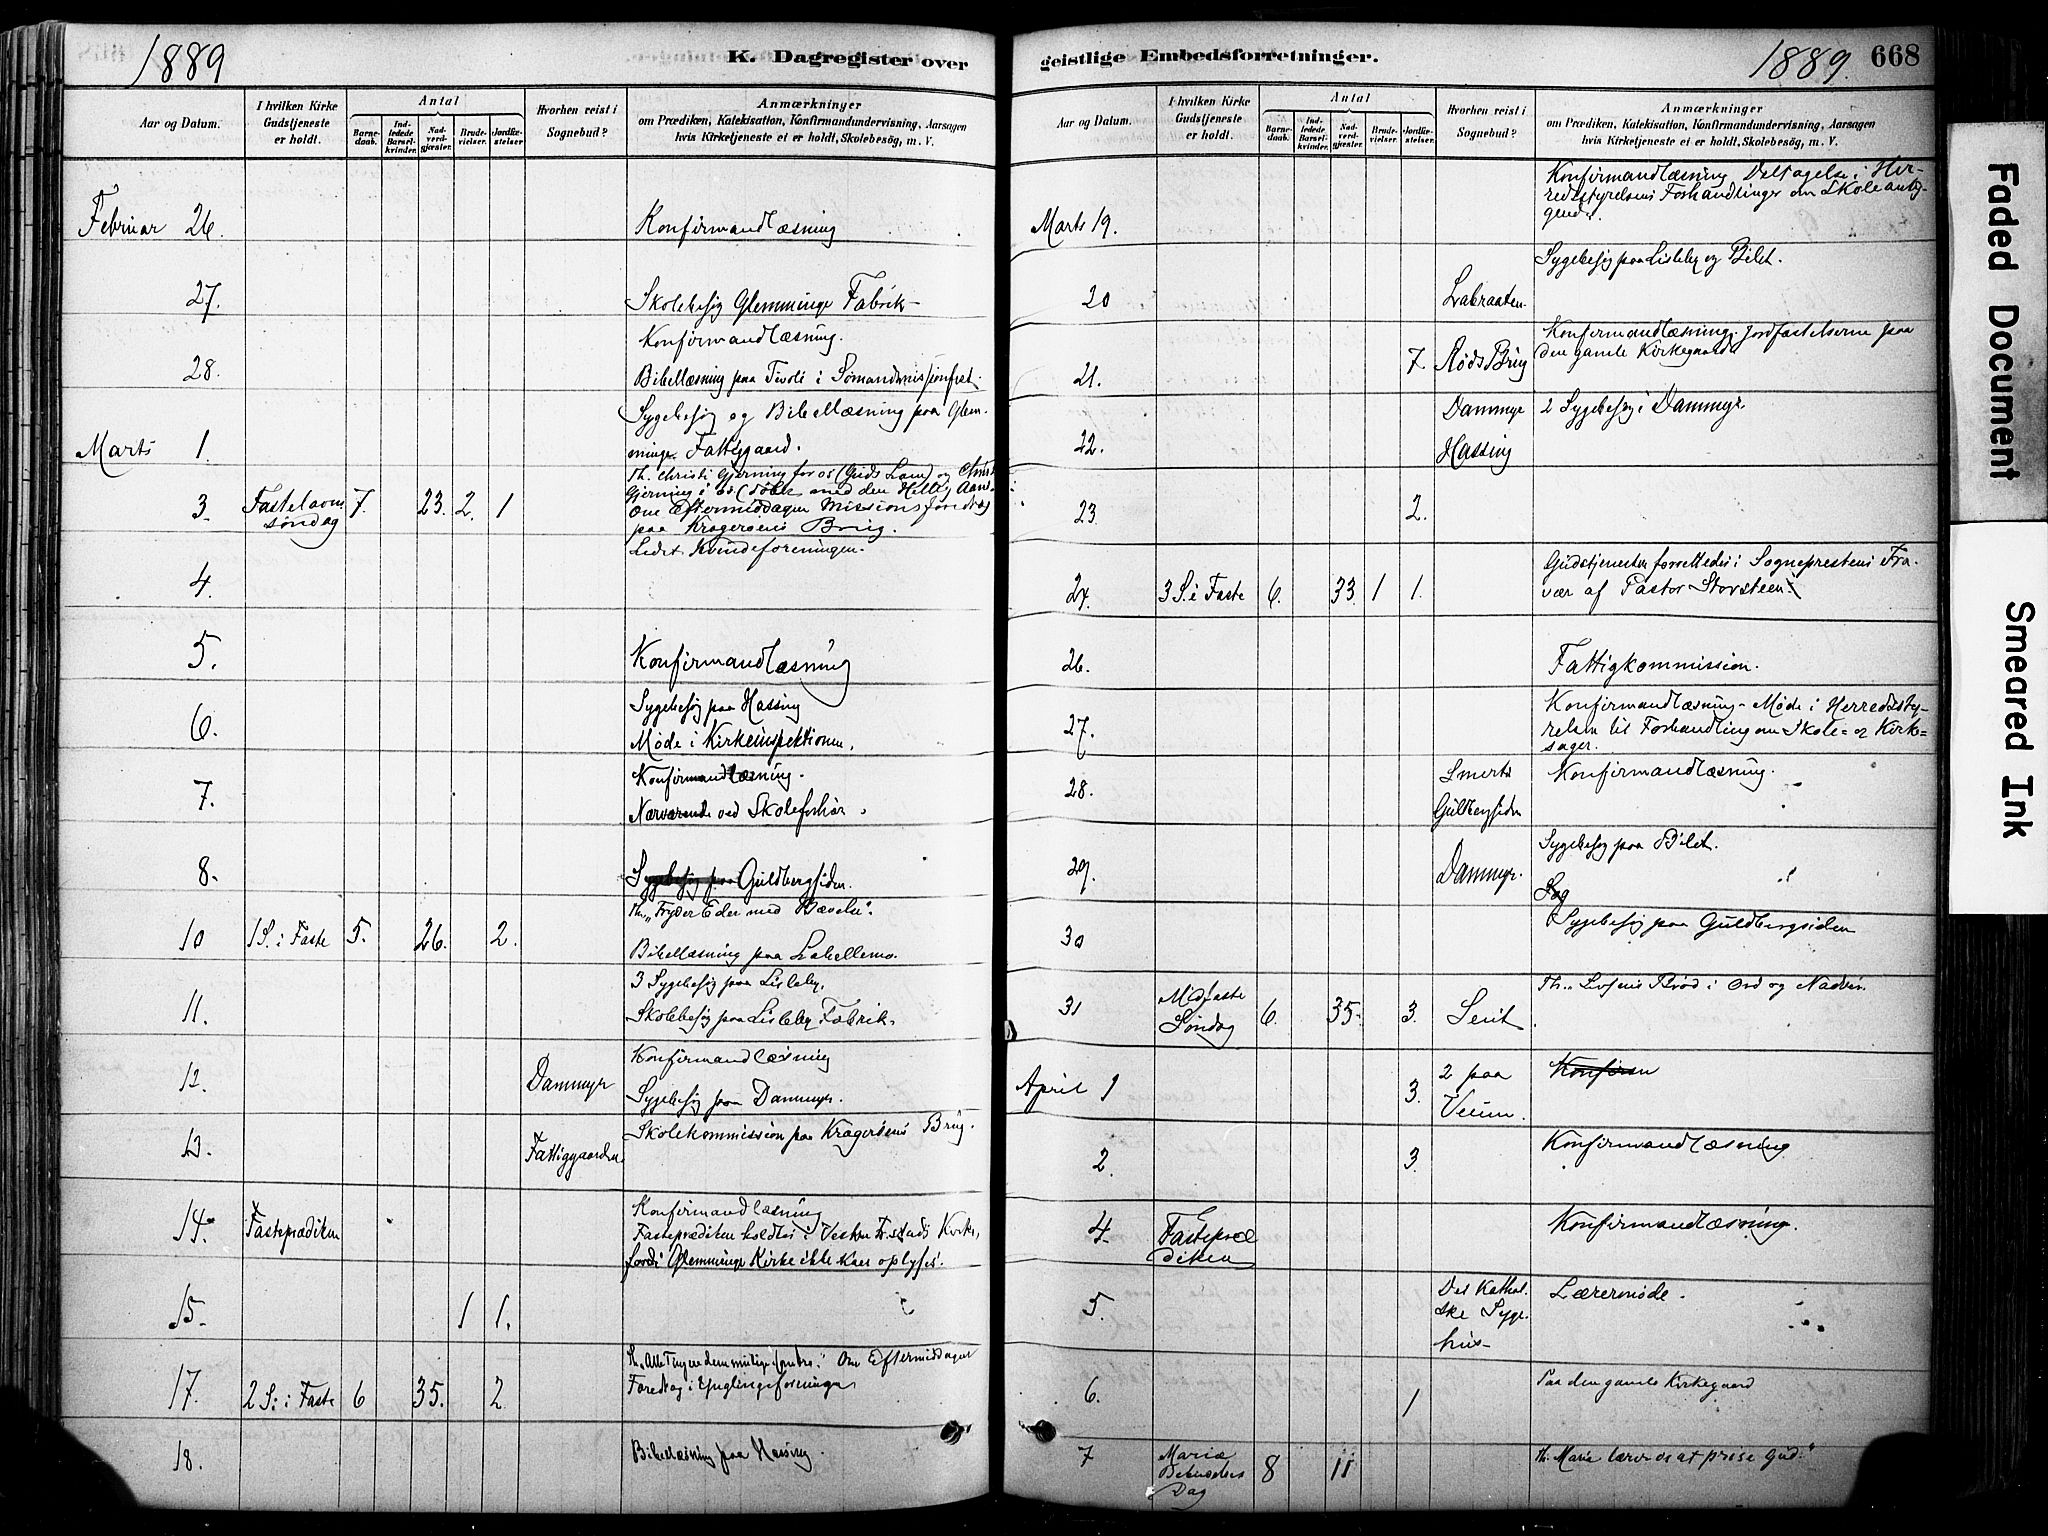 1889
K. Dagregister over
Aar og Datum.
I hvilken Kirke
Gudstjeneste
er holdt.
Antal
Barne-
daab.
Ind-
ledede
Barsel-
kvinder.
Nad-
verd-
gjæster.
Brude-
vielser.
Jordfæ-
stelser
Hvorhen reist i
Sognebud?
Anmærkninger
om Prædiken, Katekisation, Konfirmandundervisning, Aarsagen
hvis Kirketjeneste ei er holdt, Skolebesög, m. V.
Februar 26.
Konfirmandlæsning
27.
Skolebesög Glemminge Fabrik
28.
Konfirmandlæsning.
Bibellæsning paa Tivoli i Sømandsmis
Marts 1.
Sygebesög og Bibellæsning paa Glem-
minge Fattiggaard.
3. Fastelavns
søndag 7. 23. 2. 1
Th. Christi Gjerning for os (Guds Lam) og
Gjerning i os (døbt med den Hellig Aand
Om Eftermiddagen Missionsforedrag
paa Kragerøens Brug.
4
Ledet Kvindeforeningen.
5.
Konfirmandlæsning
6.
Sygebesög paa Hassing
Møde i Kirkeinspektionen.
7.
Konfirmandlæsning.
Nærværende ved Skoleforhør.
8.
Sygebesög paa Guldbergsiden.
10 1 S. i Faste 5. 26. 2.
Th. „Fryder Eder med Bævelse".
Bibellæsning paa Labellemo.
11.
3 Sygebesög paa Lisleby.
Skolebesög paa Lisleby Fabrik.
12. Dammyr
Konfirmandlæsning
Sygebesög paa Dammyr.
13. Fattiggaarden.
Skolekommission paa Kragerøens Brug.
14. Fasteprædiken
Konfirmandlæsning
Fasteprædiken holdtes i Vestre Fr.stads Kirke,
fordi Glemminge Kirke ikke kan oplyses.
15. 1 1.
17. 2 S. i Faste 6 35. 2.
Th. „ Om Eftermiddagen
Foredrag i Ynglingeforeningen
18.
Bibellæsning paa Hassing.
geistlige Embedsforretninger.
1889. 668
Aar og Datum.
I hvilken Kirke
Gudstjeneste
er holdt.
Antal
Barne-
daab.
Ind-
ledede
Barsel-
kvinder.
Nad-
verd-
gjæster.
Brude-
vielser.
Jordfæ-
stelser.
Hvorhen reist i
Sognebud?
Anmærkninger
om Prædiken, Katekisation, Konfirmandundervisning, Aarsagen
hvis Kirketjeneste ei er holdt, Skolebesög, m. V.
Marts 19.
Konfirmandlæsning Deltagelse i Her-
redsstyrelsens Forhandlinger om Skoleanlig-
gender.
20 Labraaten
Sygebesög paa Lisleby og Bilet.
21. 7. Røds Brug
Konfirmandlæsning. Jordfæstelserne paa
den gamle Kirkegaard
22. Dammyr
Hassing
2 Sygebesög i Dammyr.
23 2.
24. 3 S. i Faste 6. 33. 1 1.
Gudstjenesten forrettedes i Sogneprestens Fra-
vær af Pastor Storsteen.
26.
Fattigkommission.
27.
Konfirmandlæsning. Møde i Herredssty-
relsen til Forhandling om Skole= og Kirke=
sager.
28. Smerts
Guldbergsiden
Konfirmandlæsning.
29. Dammyr.
Sygebesög paa Bilet.
30
Sygebesög paa Guldbergsiden
31 Midfaste
Søndag 6. 35. 3.
Th. „Livsens Brød i Ord og Nadver.
April 1 3. 2 paa
Veum.
Konfirm
2. 3.
Konfirmandlæsning
4. Fastepræ
diken
Konfirmandlæsning.
5. Det Kathol-
ske Syge-
hus
Lærermøde.
6. 1
Paa den gamle Kirkegaard
7 Mariæ
Bebudelses
Dag 8 11
Th. Maria lærer os at prise Gud."
Faded Document
Smeared Ink